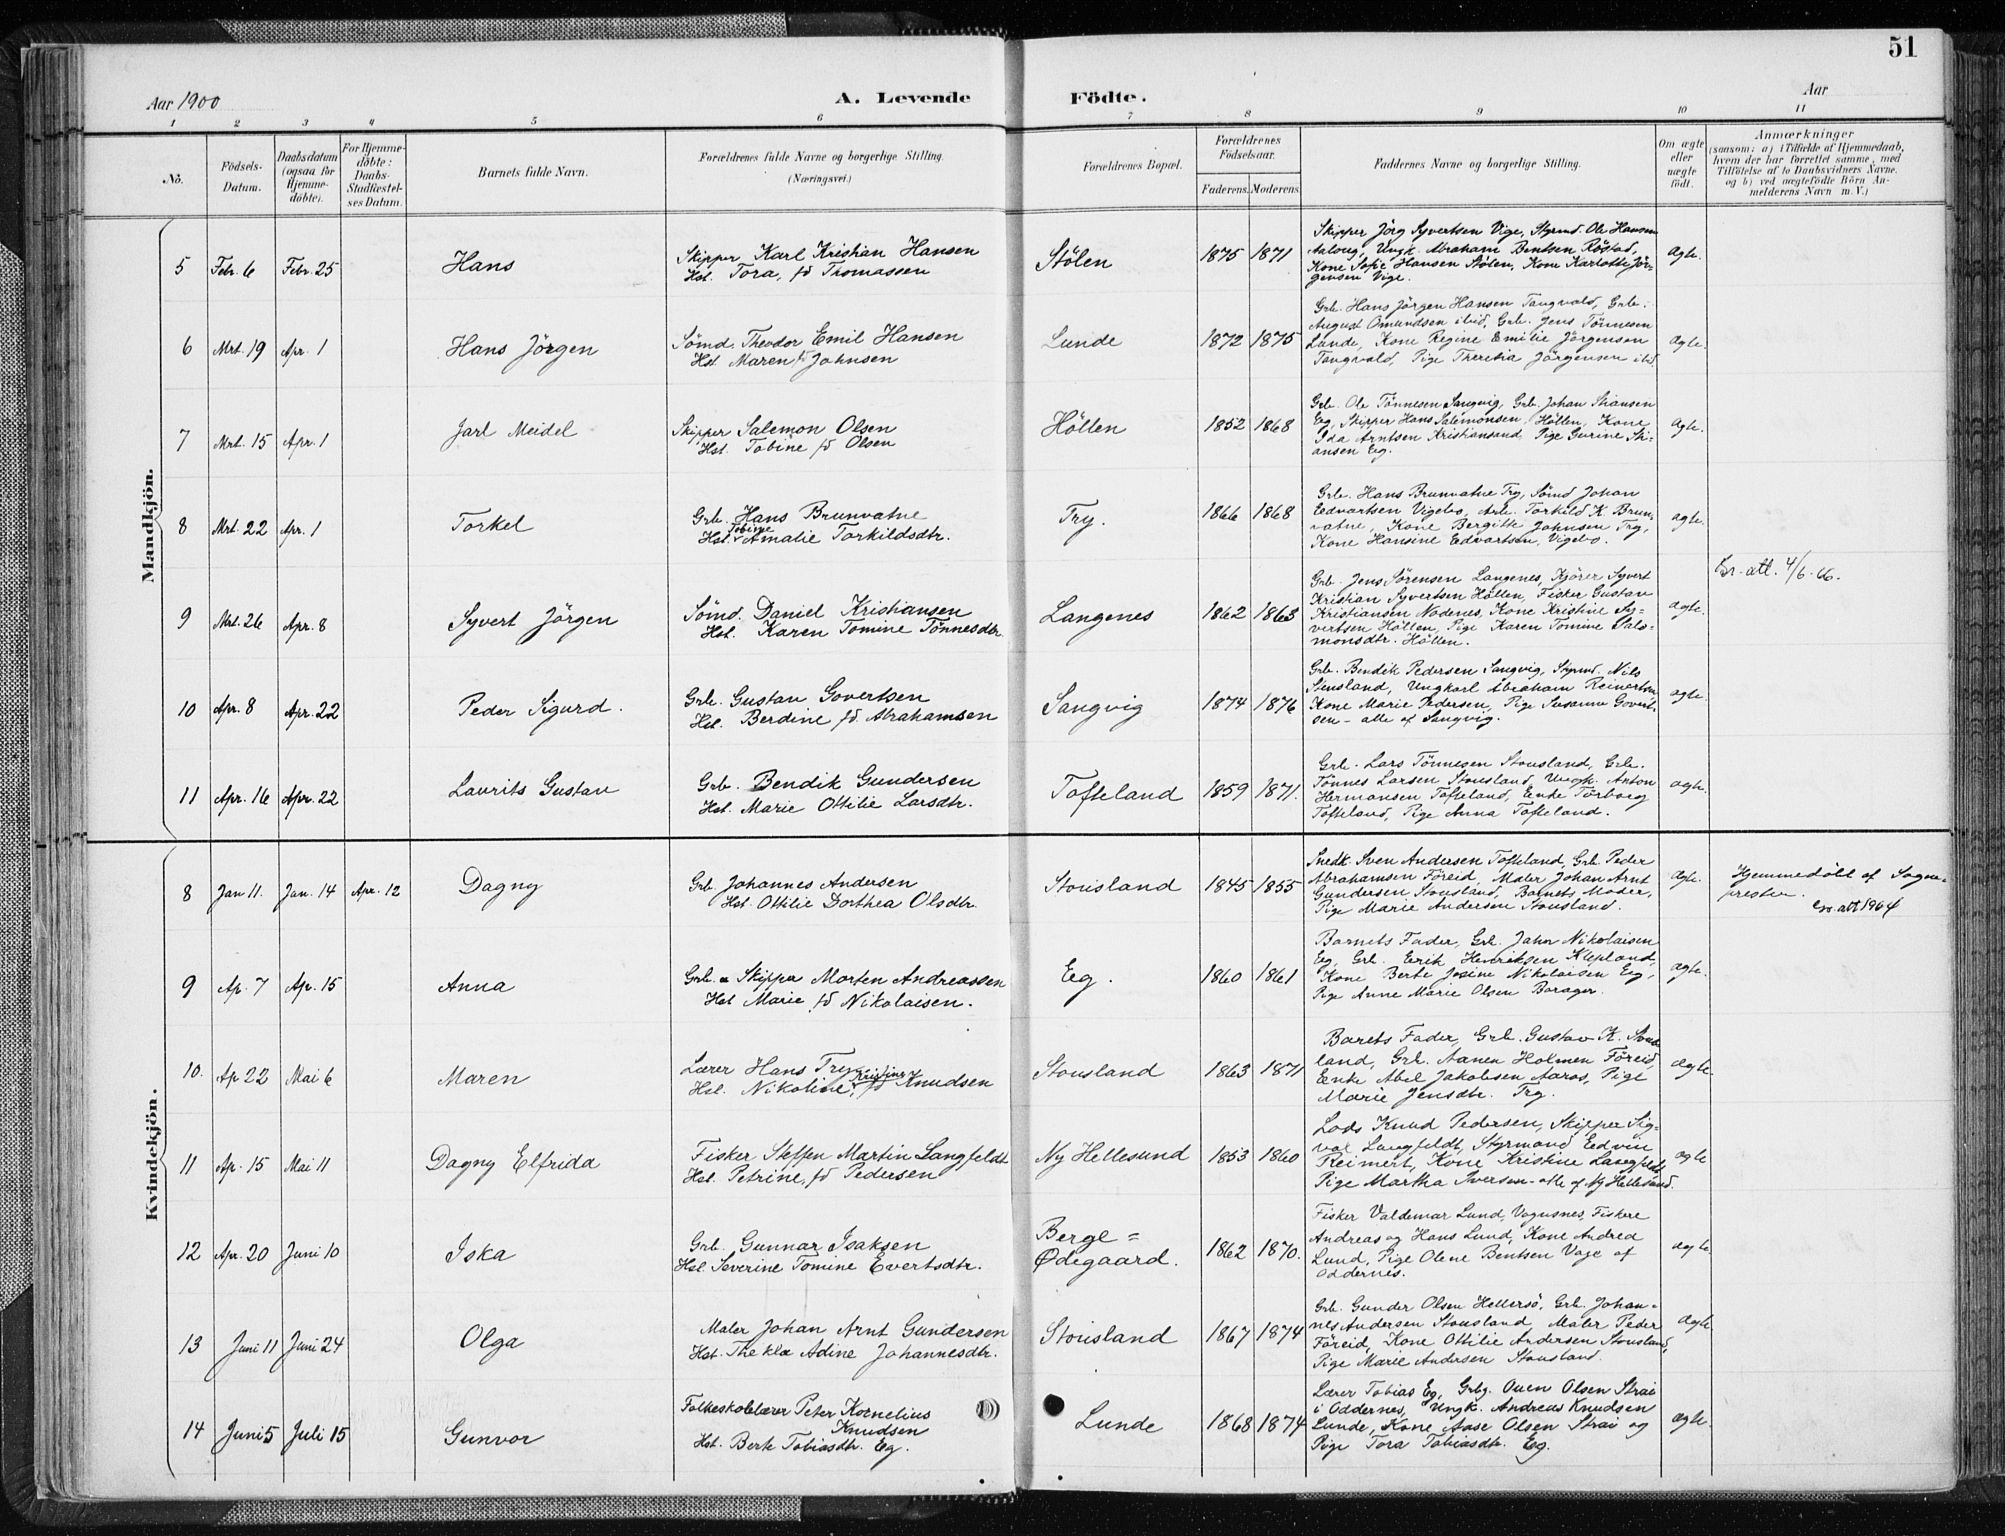 51
Aar 1900
A. Levende
Födte.
Aar
1 2 3 4 5 6 7 8 9 10 11
No.
Födsels-
Datum.
Daabsdatum
(ogsaa for
Hjemme-
döbte).
For Hjemme-
döbte:
Daabs-
Stadfæstel-
ses Datum.
Barnets fulde Navn.
Forældrenes fulde Navne og borgerlige Stilling.
(Næringsvei.)
Forældrenes Bopæl.
Forældrenes
Födselsaar.
Faderens. Moderens.
Faddernes Navne og borgerlige Stilling.
Om ægte
eller
uægte
födt.
Anmærkninger
(saasom: a) i Tilfælde af Hjemmedaab,
hvem der har forrettet samme, med
Tilföielse af to Daabsvidners Navne.
og b) ved uægtefödte Börn An-
melderens Navn m. V.)
Mandkjön.
5 Febr. 6 Febr. 25 Hans
Skipper Karl Kristian Hansen
Hst. Tora, fd Thomassen
Stölen 1875 1871
Skipper Jörg Syvertsen Vige, Styrmd. Ole Hansen
Aaloug, Ungk. Abraham Bentsen Röstad,
Kone Sofie Hansen Stölen, Kone Karlotte Jör-
gensen Vige.
ægte.
6 Mrt. 19 Apr. 1 Hans Jörgen
Sömd. Theodor Emil Hansen
Hst. Maren fd Johnsen
Lunde 1872 1875
Grb. Hans Jörgen Hansen Tangvald, Grb.
August Omundsen ibid, Grb. Jens Tönnesen
Lunde, Kone Regine Emilie Jörgensen
Tangvald, Pige Theresia Jörgensen ibd.
ægte.
7 Mrt. 15 Apr. 1 Jarl Meidel
Skipper Salemon Olsen
Hst. Tobine fd Olsen
Höllen 1852 1868
Grb. Ole Tönnesen Langvig, Grb. Johan Stiansen
Eg, Skipper Hans Salemonsen Höllen, Kone
Ida Arntsen Kristiansand, Pige Gurine Sti-
ansen Eg.
ægte.
8 Mrt. 22 Apr. 1 Torkel
Grb. Hans Brunvatne
Tobine
Hst. Amalie Torkildsdtr.
Try. 1866 1868
Grb. Hans Brunvatne Try, Sömd Johan
Edvartsen Vigebo, Arb. Torkild K. Brun-
vatne, Kone Bergitte Johnsen Try,
Kone Hansine Edvartsen, Vigebo.
ægte.
9 Mrt. 26 Apr. 8 Syvert Jörgen
Sömd. Daniel Kristiansen
Hst. Karen Tomine Tönnesdtr.
Langenes 1862 1863
Grb. Jens Sörensen Langenes, Kjörer Syvert
Kristian Syvertsen Höllen, Fisker Gustav
Kristiansen Nodenes, Kone Kristine Sy-
vertsen Höllen, Pige Karen Tomine Salo-
monsdtr. Höllen.
ægte.
Sr. att. 4/6-66.
10 Apr. 8 Apr. 22 Peder Sigurd.
Grb. Gustav Govertsen
Hst. Berdine fd Abrahamsen
Langvig 1874 1876
Grb. Bendik Pedersen Langvig, Styrmd. Nils
Stensland, Ungkarl Abraham Reinertsen,
Kone Marie Pedersen, Pige Susanne Govert-
sen - alle af Langvig.
ægte.
11 Apr. 16 Apr. 22 Laurits Gustav
Grb. Bendik Gundersen
Hst. Marie Ottilie Larsdtr.
Tofteland 1859 1871.
Grb. Lars Tönnesen Stousland, Grb.
Tönnes Larsen Stousland, Ungk. Anton
Hermansen Tofteland, Enke Torborg
Tofteland, Pige Anna Tofteland.
ægte.
Kvindekjön.
8 Jan 11. Jan. 14 Apr. 12 Dagny
Grb. Johannes Andersen
Hst. Ottilie Dorthea Olsdtr.
Stousland 1845 1855
Snedk. Sven Andersen Tofteland, Grb. Peder
Abrahamsen Föreid, Maler Johan Arnt
Gundersen Stousland, Barnets Moder,
Pige Marie Andersen Stousland.
ægte.
Hjemmedöbt af Sogne-
presten.
Sr. att 1964
9 Ap. 7 Ap. 15 Anna
Grb. & Skipper Morten Andreassen
Hst Marie fd Nikolaisen.
Eg. 1860 1861
Barnets Fader, Grb. John Nikolaisen
Eg, Grb. Erik Henriksen Klepland,
Kone Berte Josine Nikolaisen Eg,
Pige Anne Marie Olsen Borager.
ægte.
10. Ap 22 Mai 6 Maren
Lærer Hans Try
Kristine
Hst. Nikoline, fd Knudsen
Stousland 1863 1871
Barets Fader, Grb. Gustav K. Stous-
land, Grb. Aanen Holmen Föreid,
Enke Abel Jakobsen Aaros, Pige
Marie Jensdtr. Try.
ægte.
11 Ap. 15 Mai 11 Dagny Elfrida
Fisker Steffen Martin Langfeldt
Hst. Petrine, fd Pedersen
Ny Hellesund 1853 1860
Lods Knud Pedersen, Skipper Sig-
val Langfeldt, Styrmand Edvin
Reimert, Kone Kristine Langfeldt
Pige Martha Iversen - alle af Ny Hellesund.
ægte
12 Apr. 20 Juni 10 Iska
Grb. Gunnar Isaksen
Hst. Severine Tomine Evertsdtr.
Berge=
Ødegaard. 1862 1870.
Fisker Valdemar Lund, Vagnsnes, Fiskere
Andreas og Hans Lund, Kone Andrea
Lund, Pige Olene Bentsen Vage af
Oddernes.
ægte.
13 Juni 11 Juni 24 Olga
Maler Johan Arnt Gundersen
Hst. Thekla Adine Johannesdtr.
Stousland 1867 1874
Grb. Gunder Olsen Hellersö, Grb. Johan-
nes Andersen Stousland, Maler Peder
Föreid, Kone Ottilie Andersen Stousland,
Pige Marie Andersen Stousland.
ægte
14 Juni 5 Juli 15 Gunvor
Folkeskolelærer Peter Kornelius
Knudsen
Hst. Berte Tobiasdtr. Eg.
Lunde 1868 1874
Lærer Tobias Eg, Grbg. Ouen Olsen Strai
i Oddernes, Ungk. Andreas Knudsen
Lunde, Kone Aase Olsen Strai og
Pige Tora Tobiasdtr. Eg.
ægte.